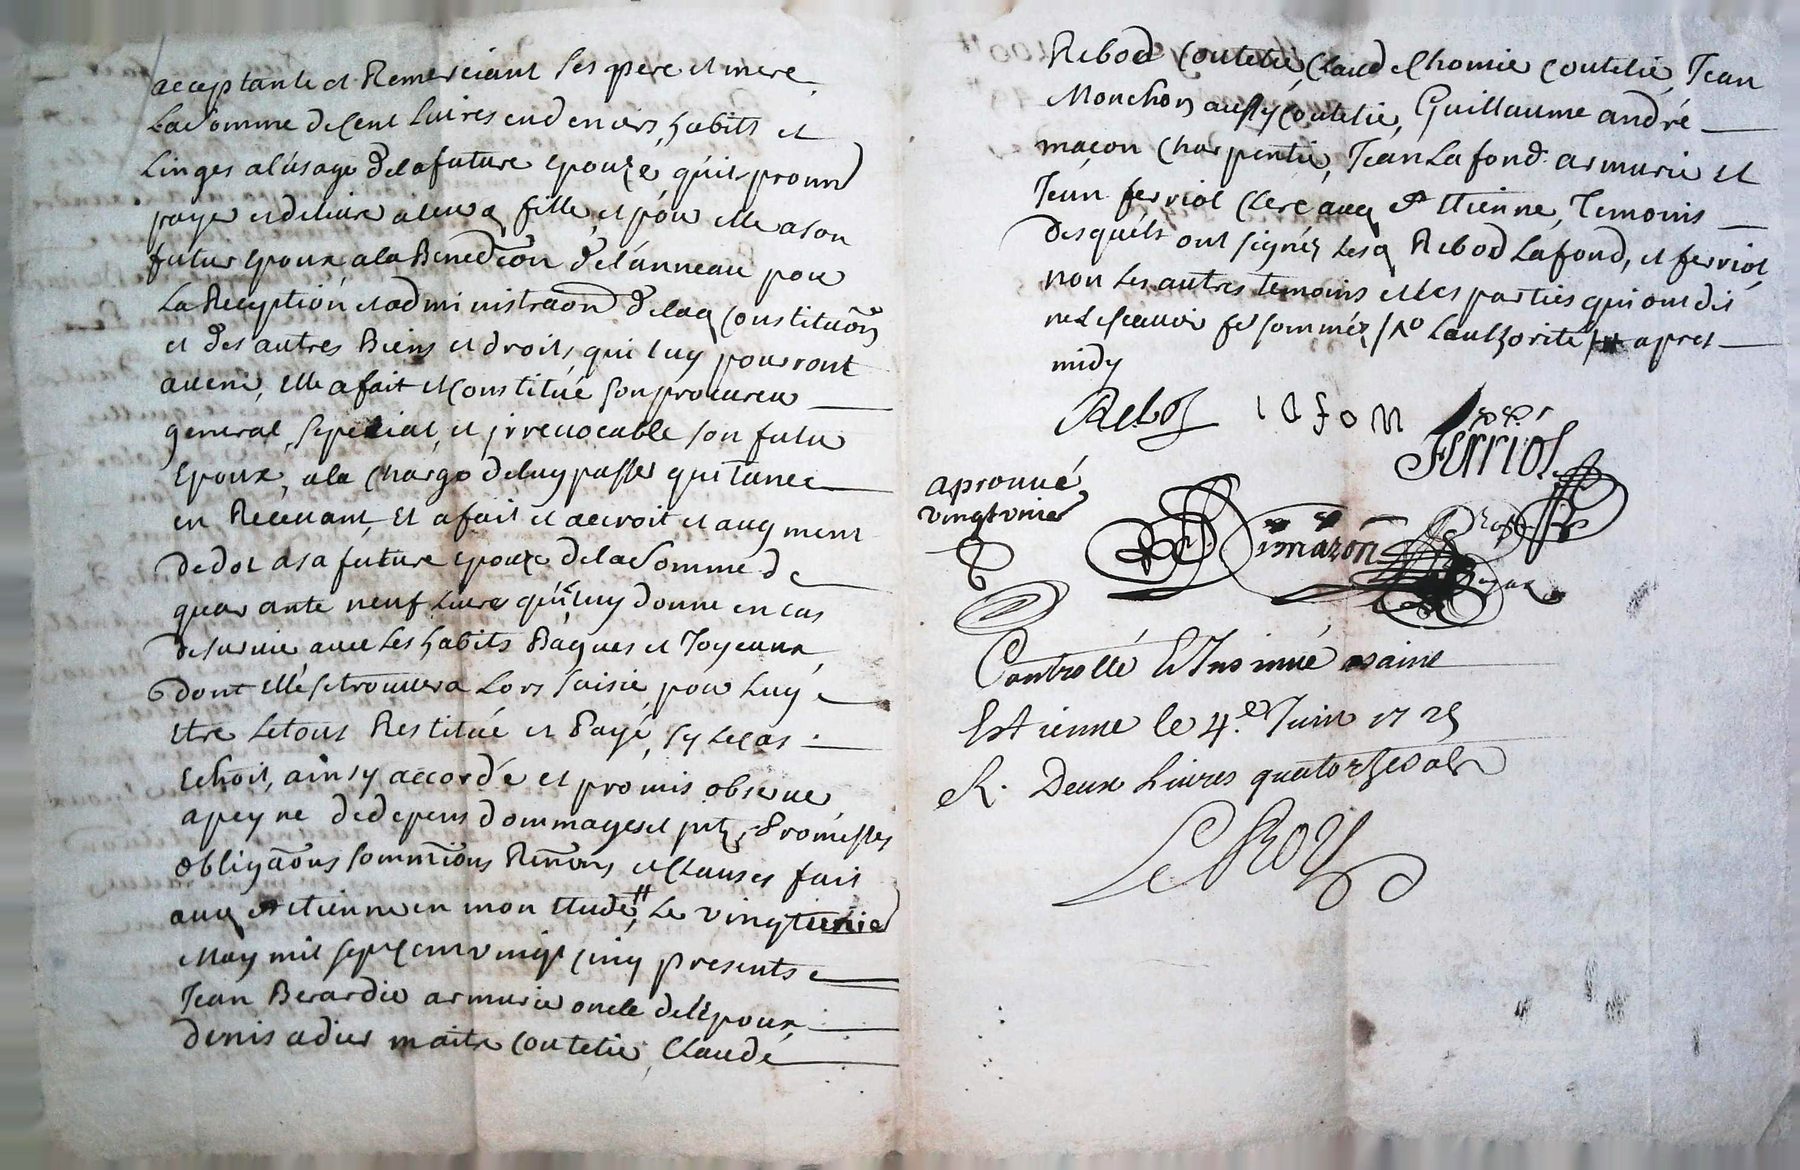 acceptante et Remerciant ses pere et mere
La somme de Cent Livres en deniers habits et
Linges a l'usage de la future epouze, qu'ils prom
paye et delivre a leurd fille, et pour elle a son
futur epoux a la Benedōn de l'anneau pour
La Reception et administraōn de lad Constituōn
et des autres Biens et droits qui luy pourront
avenir, elle a fait et Constitué son procureur
general, special, et jrrevocable son futur
Epoux, a la charge de luy passer quitance
en Recevant, Et a fait et accroit et augment
de dot a sa future epouze de la Somme de
quarante neuf Livre qu'il luy donne en cas
de survie avec Les habits Bagues et Joyeaux
dont elle se trouvera Lors saisie, pour Luy e
stre Letout Restitué et Payé, sy Le cas
Echoit, ainsy accordé et promis observe
a peyne de depens dommages et jnts, Promesses
obligaōns soummiōns Renōns et Clauses fait
aud St Etienne en mon Etude # Le vingtunie
May mil sept Cent vingt cinq presents
Jean Berardie armurie oncle de l'Epoux
denis adier maitre Coutelie, Claude
Rebod Coutelie Claud Chomie Coutelie, Jean
Monchon aussy Coutelie, Guillaume andré
maçon Charpentie, Jean Lafond armurie et
Jean ferriol Clerc aud St Etienne, Temoins
desquels ont signés Lesd Rebod Lafond, et ferriol
non Les autres temoins et Les parties qui ont dit
ne Scavoir de ce sommés /Ro Lauthorité/ # apres
midy
Rebod lafon
ferriol
aprouué
vingtunie
Simazon
Controllé Et Insinué a saint
Estienne le 4.e Juin 1725
R. Deux Livres quatorze sols
Le Roy